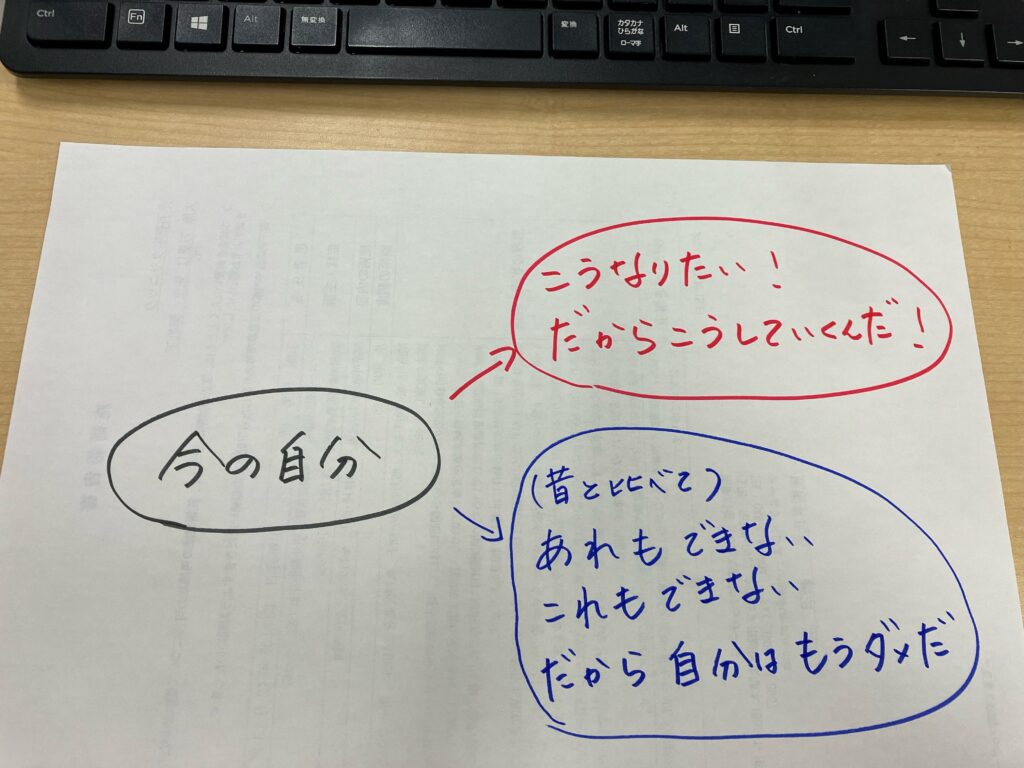 Ctrl
Fn
Alt
無変換
変換
カタカナ
ひらがな
ローマ字
Alt
Ctrl
←
↓
→
こうなりたい!
だからこうしていくんだ!
今の自分
(昔と比べて)
あれもできない
これもできない
だから自分はもうダメだ